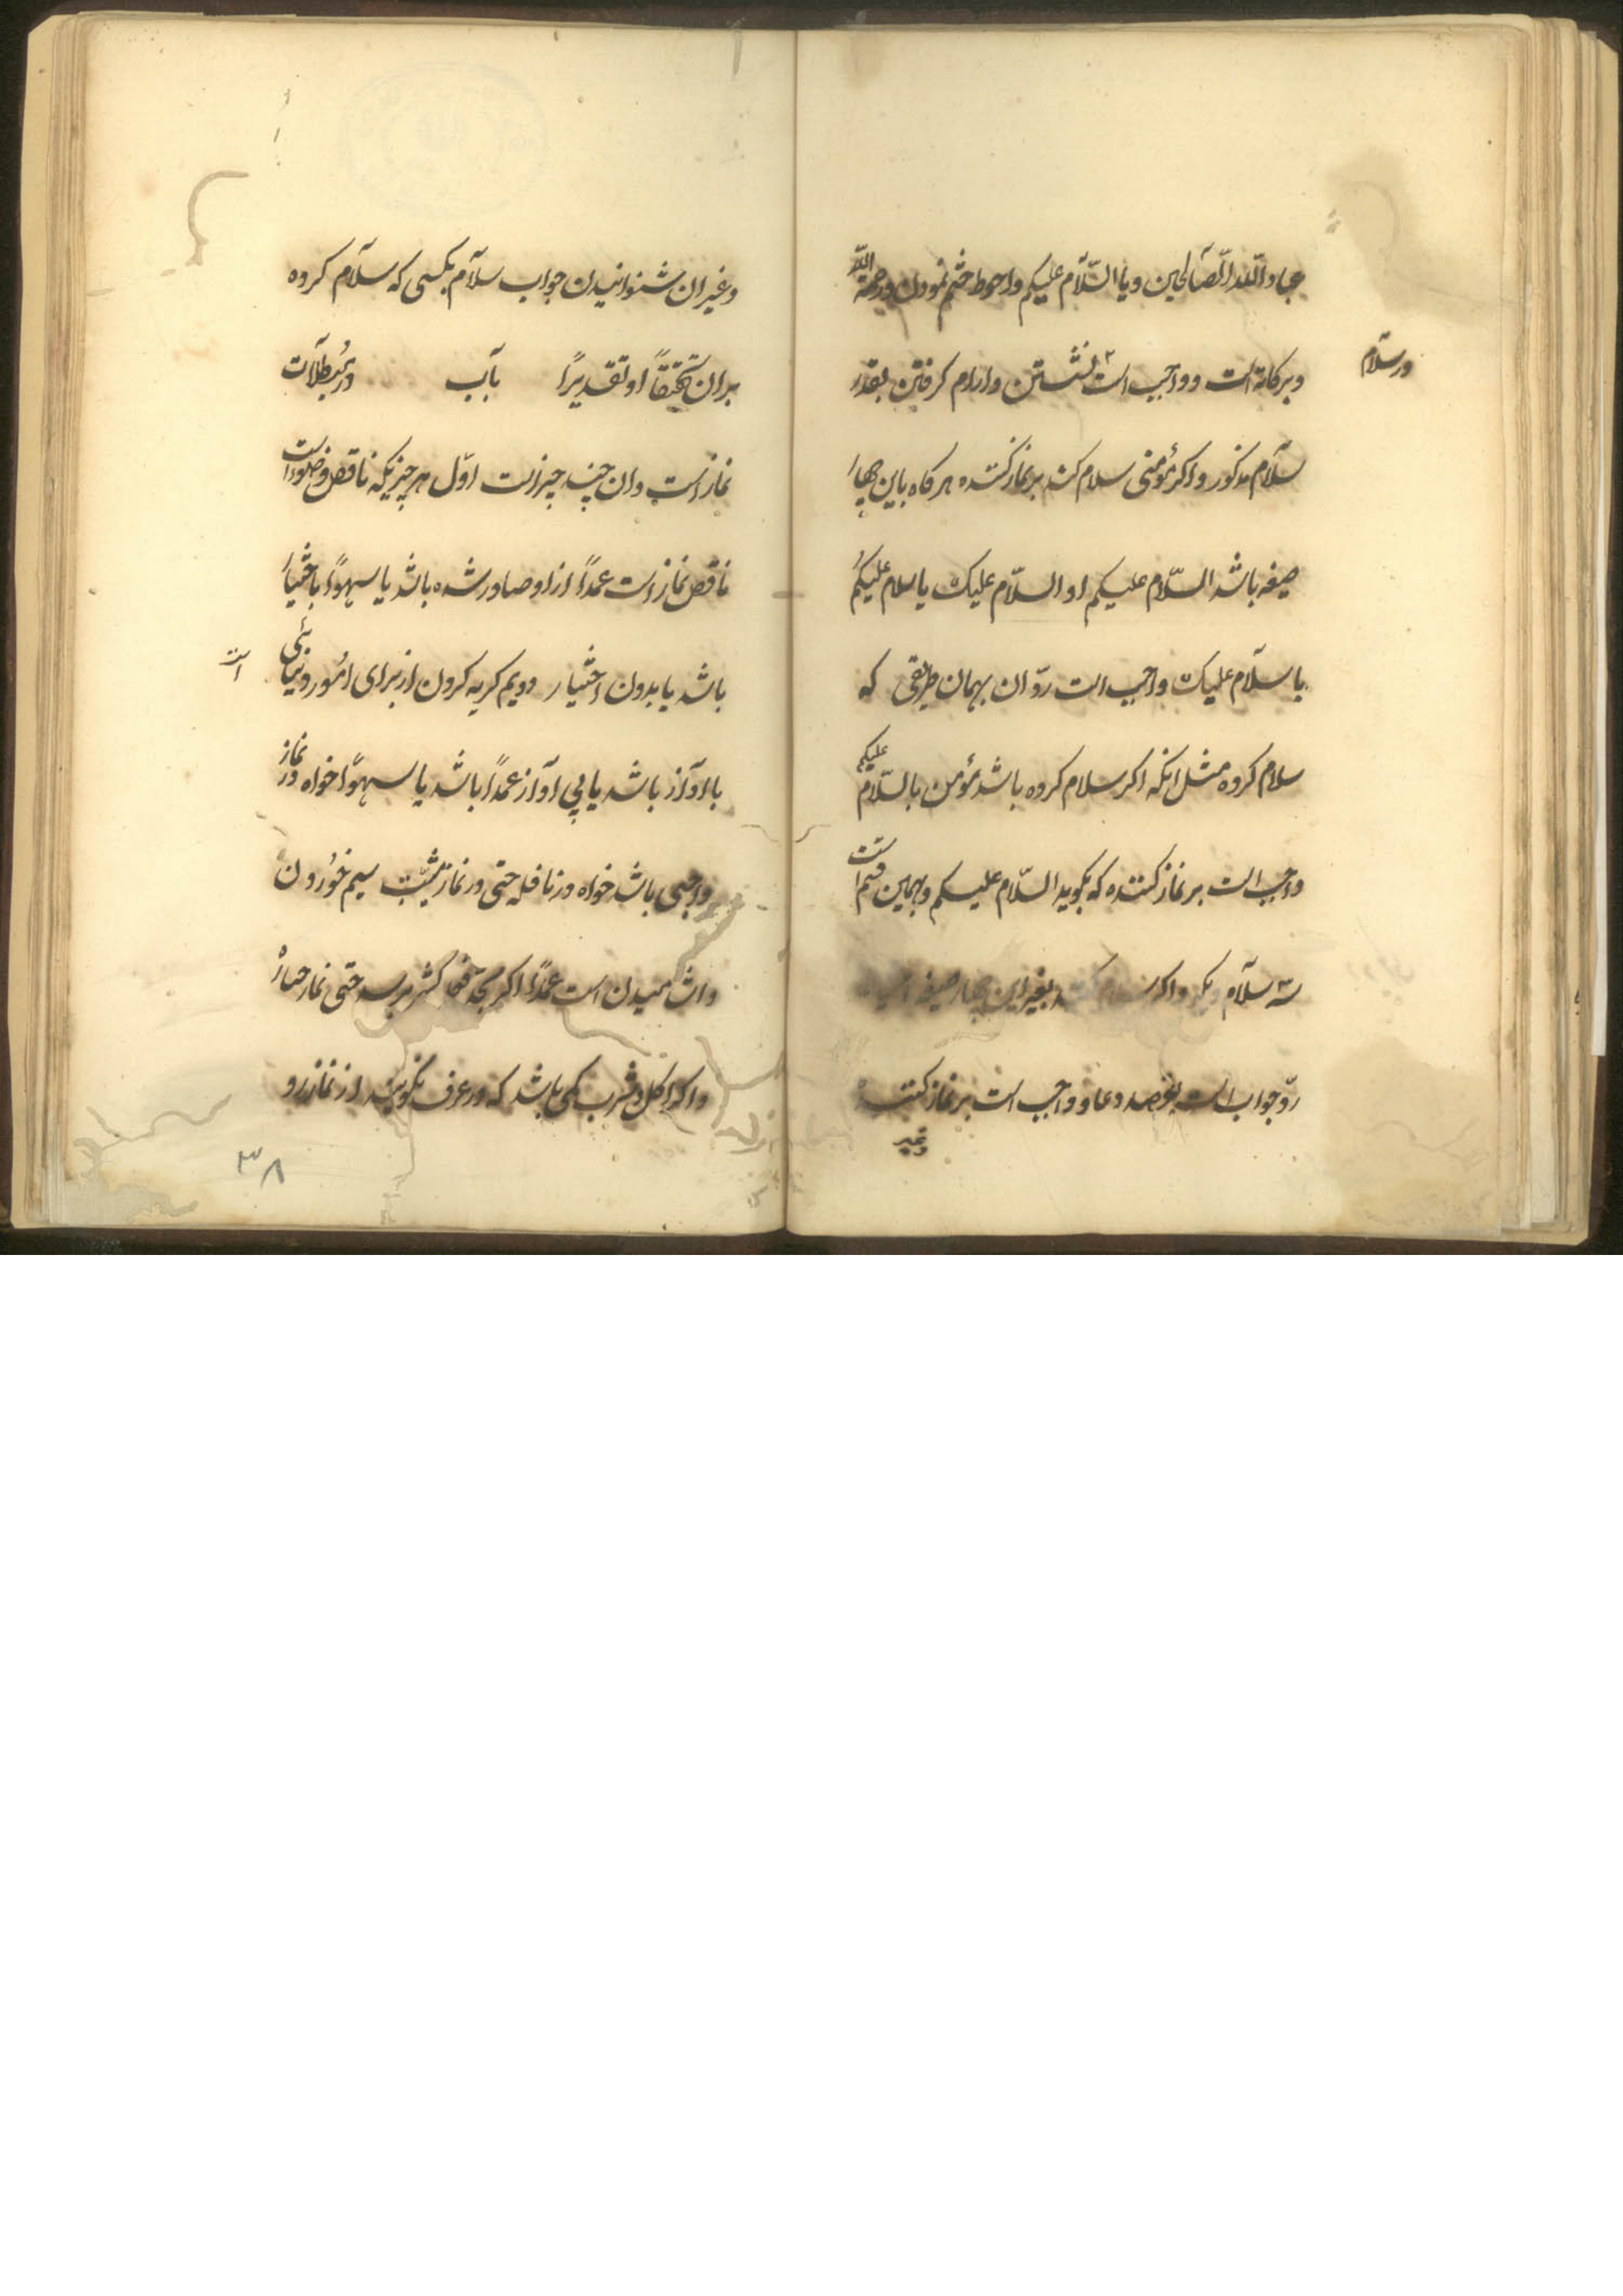 عباد الله الصّالحین و یا السّلام علیکم و احوط ختم نمودن و رحمة الله
در سلام
و برکاته است و واجب است نشستن و ارام کرفتن بقدر
سلام مذکور و اکر مؤمنی سلام کند بر نماز کننده هر کاه باین چهار
صیغه باشد السّلام علیکم او السّلام علیک یا سلام علیکم
یا سلام علیک واجب است ردّ ان بهمان طریقی که
سلام کرده مثل انکه اکر سلام کرده باشد مؤمن بالسّلام علیکم
واجب است بر نماز کننده که بکوید السّلام علیکم و بهمین قسم است
سه سلام دیکر و اکر سلام کند بغیر این چهار صیغه
ردّ جواب است بقصد دعا و واجب است بر نماز کننده
و غیر
و غیر ان شنوانیدن جواب سلام بکسی که سلام کرده
بر ان تحقیقاً او تقدیراً باب در مبطلات
نماز است و ان چند چیز است اوّل هر چیزیکه ناقض وضو است
ناقض نماز است عمداً از او صادر شده باشد یا سهواً باختیار
باشد یا بدون اختیار دویم کریه کردن از برای امور دنیائی است
با اواز باشد یا بی اواز عمداً باشد یا سهواً خواه در نماز
واجبی باشد خواه در نافله حتی در نماز میّت سیم خوردن
و اشامیدن است عمداً اکر بحدّ فعل کثیر برسد حتی نماز جنازه
و اکر اکل و شرب کمی باشد که در عرف نکویند از نماز رو
۳۸